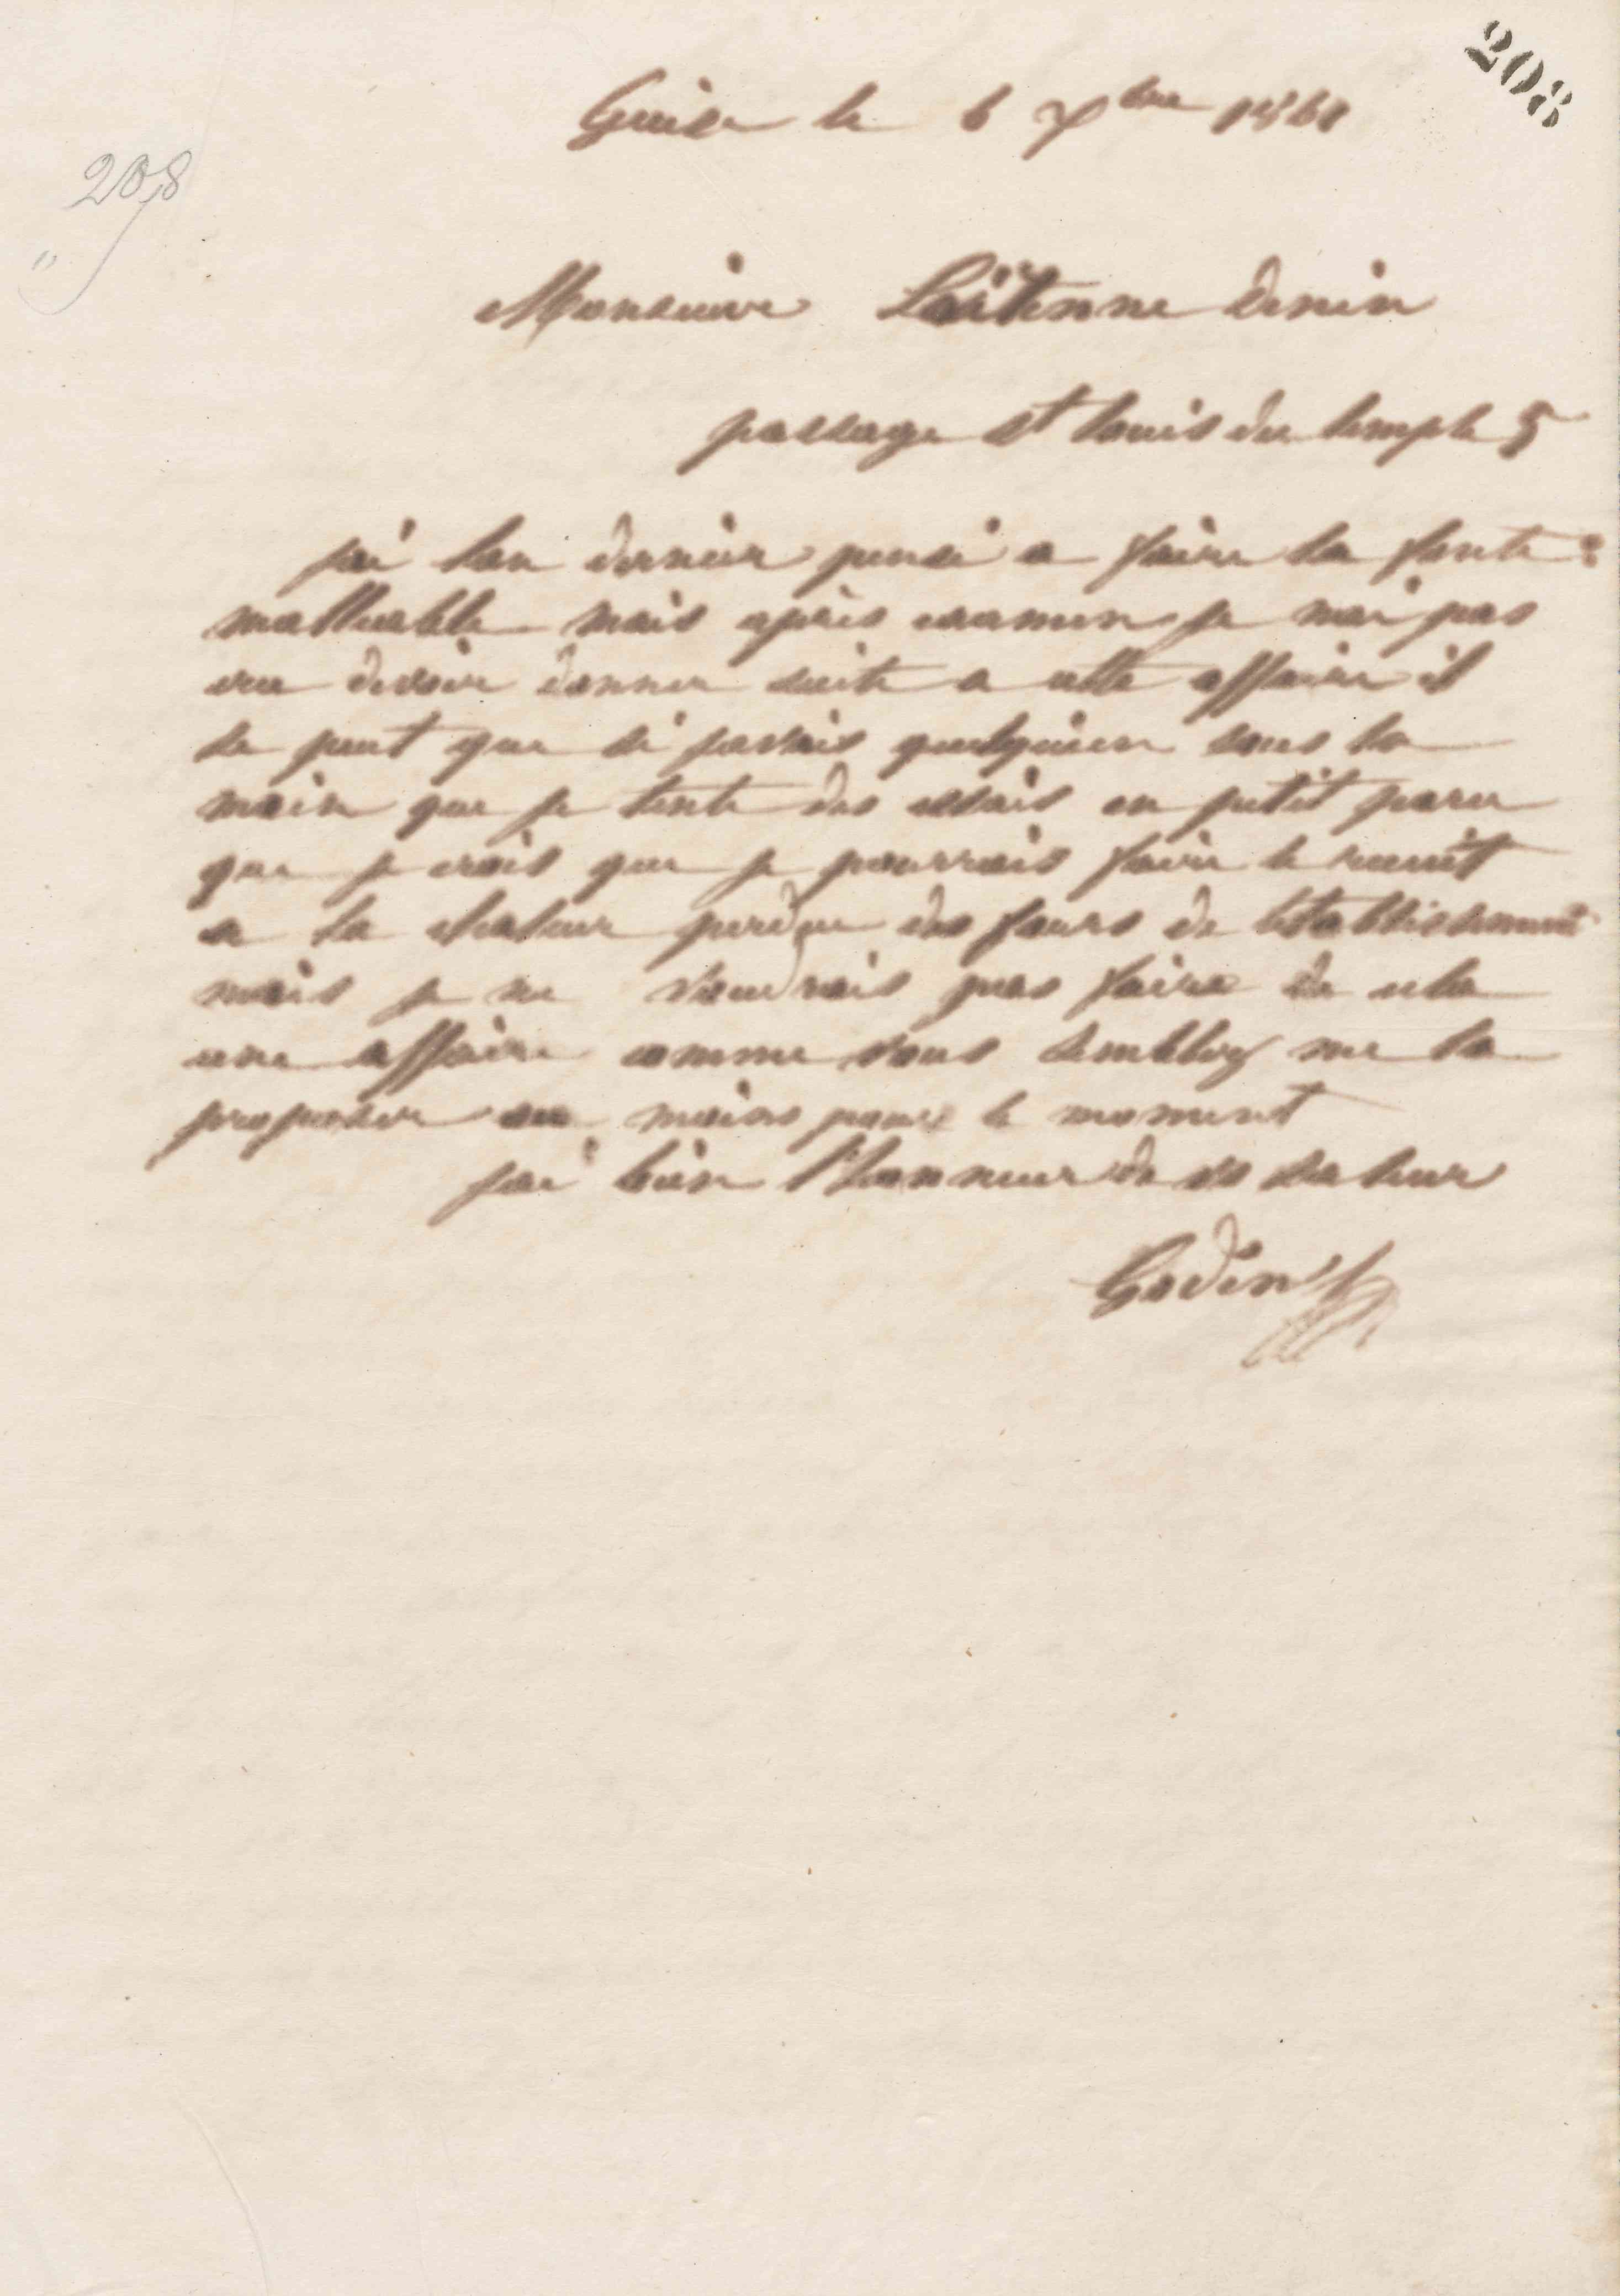 208
Guise le 6 7bre 1861
208
Monsieur Denin
passage St Louis du temple 5
jai lan dernier pensé a faire la fonte
malleable mais après examen je nai pas
cru devoir donner suite a cette affaire il
se peut que si javais quelquun sous la
main que je tente des essais en petit parce
que je crois que je pourrais faire le recuit
a la chaleur perdue des fours de letablissement
mais je ne voudrais pas faire de cela
une affaire comme vous semblez me la
proposer au moins pour le moment
jai bien l'honneur de vs saluer
Godin